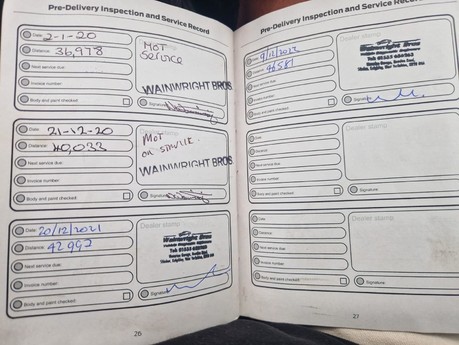 Pre-Delivery Inspection and Service Record
Date: 2-1-20
Distance: 36,978
Next service due:
Invoice number:
Body and paint checked:
MOT
SERVICE
WAINWRIGHT BROS
Signature:
Date: 21-12-20
Distance: 40,033
Next service due:
Invoice number:
Body and paint checked:
MOT
WAINWRIGHT BROS
Signature:
Date: 20/12/2021
Distance: 42992
Next service due:
Invoice number:
Body and paint checked:
Dealer stamp
Wainwright Bros
Signature:
26
Pre-Delivery Inspection and Service Record
Date: 9/12/2022
Distance: 46581
Next service due:
Invoice number:
Body and paint checked:
Wainwright Bros
Signature:
Date:
Distance:
Next service due:
Invoice number:
Body and paint checked:
Dealer stamp
Signature:
Date:
Distance:
Next service due:
Invoice number:
Body and paint checked:
Dealer stamp
Signature:
27